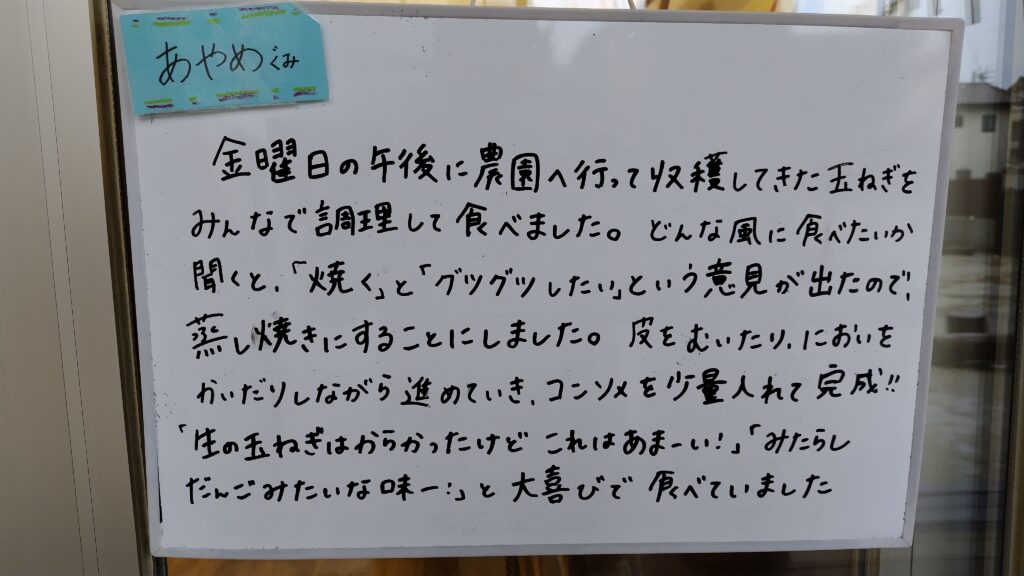 あやめぐみ
金曜日の午後に農園へ行って収穫してきた玉ねぎを
みんなで調理して食べました。どんな風に食べたいか
聞くと、「焼く」と「グツグツしたい」という意見が出たので、
蒸し焼きにすることにしました。皮をむいたり、においを
かいだりしながら進めていき、コンソメを少量入れて完成!!
「生の玉ねぎはからかったけど これはあまーい!」「みたらし
だんごみたいな味ー!」と大喜びで食べていました